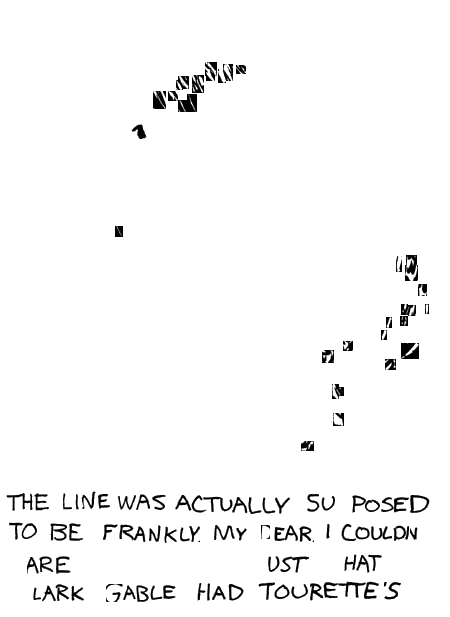 THE LINE WAS ACTUALLY SU POSED
TO BE FRANKLY. MY DEAR. I COULDN
ARE UST HAT
LARK GABLE HAD TOURETTE'S